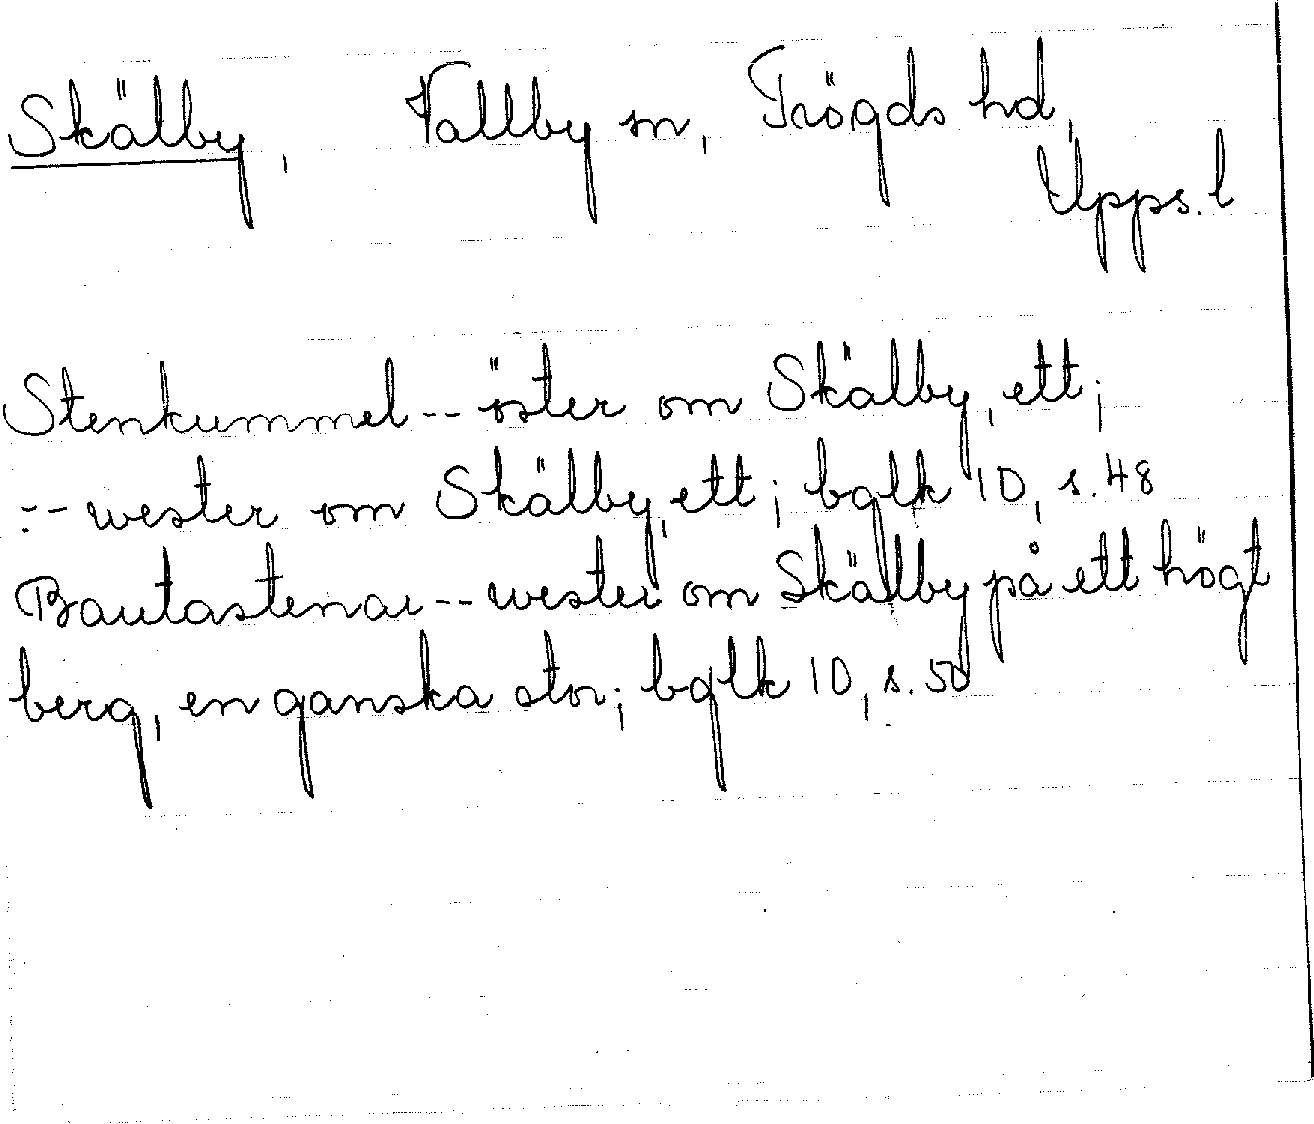 Skälby, Vallby sn, Trögds hd,
Upps. l
Stenkummel -- öster om Skälby, ett;
:-- wester om Skälby, ett; bqlk 10, s. 48
Bautastenar -- wester om Skälby på ett högt
berg, en ganska stor; bqlk 10, s. 50